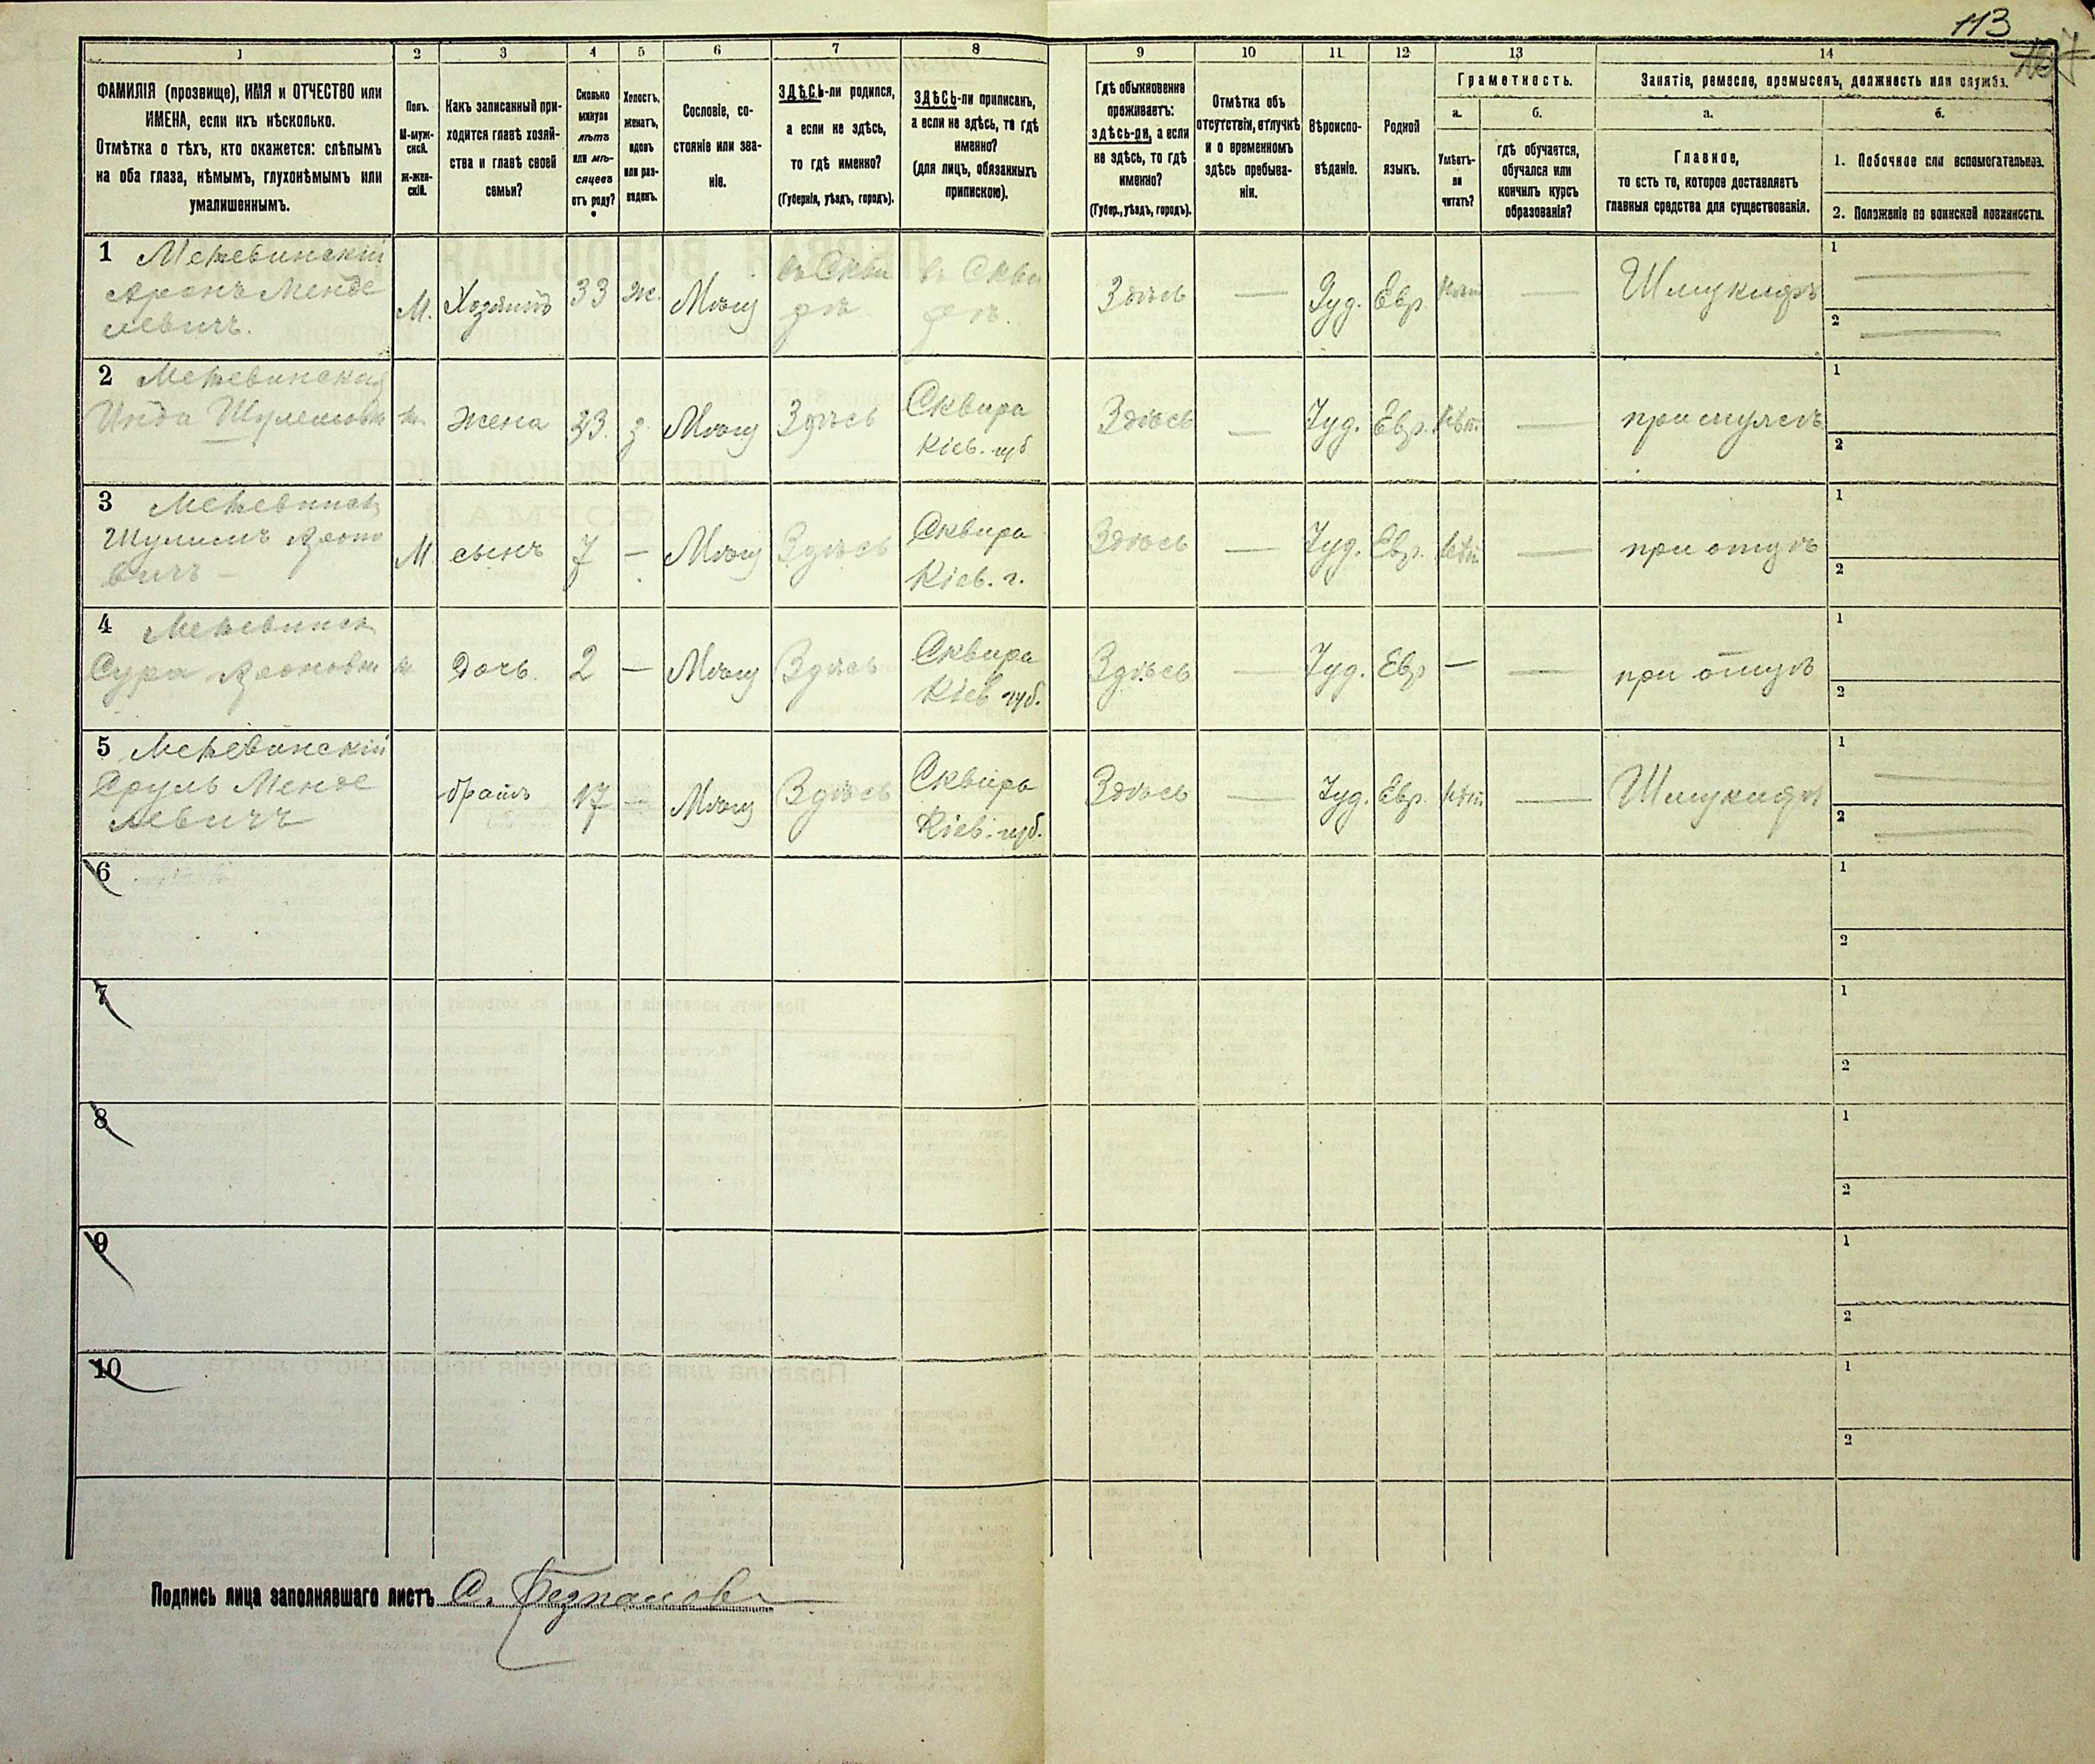 113
1
2
3
4
5
6
7
8
9
10
11
12
13
14
ФАМИЛІЯ (прозвище), ИМЯ и ОТЧЕСТВО или
ИМЕНА, если ихъ нѣсколько.
Отмѣтка о тѣхъ, кто окажется: слѣпымъ
на оба глаза, нѣмымъ, глухонѣмымъ или
умалишеннымъ.
Полъ.
М-муж-
ской.
Ж-жен-
скій.
Какъ записанный при-
ходится главѣ хозяй-
ства и главѣ своей
семьи?
Сколько
минуло
лѣтъ
или мѣ-
сяцевъ
отъ роду?
Холостъ,
женатъ,
вдовъ
или раз-
веденъ.
Сословіе, со-
стояніе или зва-
ніе.
ЗДѢСЬ-ли родился,
а если не здѣсь,
то гдѣ именно?
(Губернія, уѣздъ, городъ).
ЗДѢСЬ-ли приписанъ,
а если не здѣсь, то гдѣ
именно?
(для лицъ, обязанныхъ
припискою).
Гдѣ обыкновенно
проживаетъ:
здѣсь-ли, а если
не здѣсь, то гдѣ
именно?
(Губер., уѣздъ, городъ).
Отмѣтка объ
отсутствіи, отлучкѣ
и о временномъ
здѣсь пребыва-
ніи.
Вѣроиспо-
вѣданіе.
Родной
языкъ.
Грамотность.
а.
Умѣетъ-
ли
читать?
б.
гдѣ обучается,
обучался или
кончилъ курсъ
образованія?
Занятіе, ремесло, промыселъ, должность или служба.
а.
Главное,
то есть то, которое доставляетъ
главныя средства для существованія.
б.
1. Побочное или вспомогательное.
2. Положеніе по воинской повинности.
1 Межевинскій
Аронъ Менде
левичъ.
М. Хозяинъ 33 Ж. Мѣщ въ Скви
рѣ въ Скви
рѣ. Здѣсь — Іуд. Евр. —
1 —
2 —
2 Межевинская
Жена 33. Мѣщ Здѣсь Сквира
Кіев. губ Здѣсь — Іуд. Евр. —
1
2
3 Межевинск
Шулимъ Ароно
вичъ —
М сынъ 7 — Мѣщ Здѣсь Сквира
Кіев. г. Здѣсь — Іуд. Евр. — при отцѣ
1
2
4 Межевинск
Сура Ароновн
Дочь. 2 — Мѣщ Здѣсь Сквира
Кіев губ. Здѣсь — Іуд. Евр — — при отцѣ
1
2
5 Межевинскій
Сруль Менде
левичъ
братъ 17 — Мѣщ Здѣсь Сквира
Кіев. губ. Здѣсь — Іуд. Евр. —
1 —
2 —
6
1
2
7
1
2
8
1
2
9
1
2
10
1
2
Подпись лица заполнявшаго листъ С.